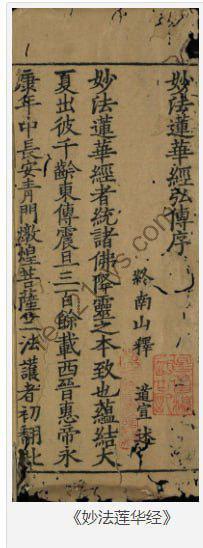 妙法蓮華經弘傳序
終南山釋 道宣 述
妙法蓮華經者統諸佛降靈之本致也蘊結大
夏出彼千齡東傳震旦三百餘載西晉惠帝永
康年中長安青門燉煌菩薩竺法護者初翻此
《妙法莲华经》